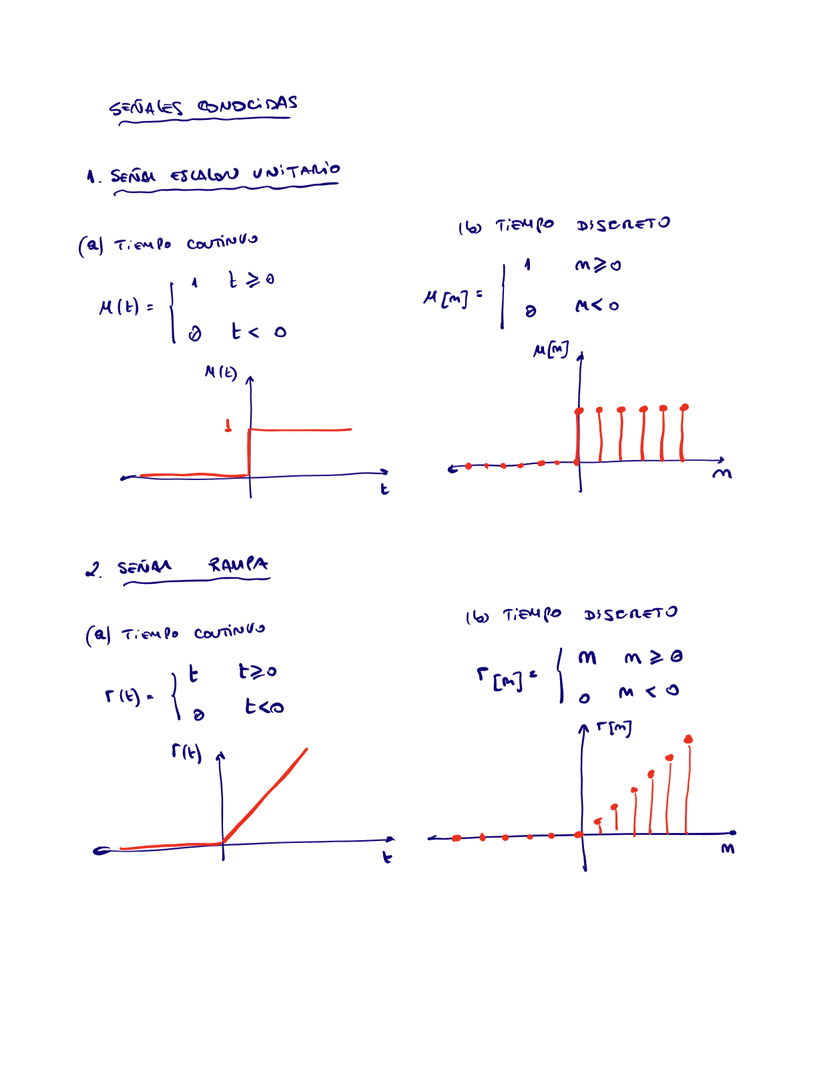 SEÑALES CONOCIDAS
1. SEÑAL ESCALON UNITARIO
(a) TIEMPO CONTINUO
μ(t) = { 1 t ≥ 0
0 t < 0
μ(t)
1
t
(b) TIEMPO DISCRETO
μ[n] = { 1 n ≥ 0
0 n < 0
μ[n]
n
2. SEÑAL RAMPA
(a) TIEMPO CONTINUO
r(t) = { t t ≥ 0
0 t < 0
r(t)
t
(b) TIEMPO DISCRETO
r[n] = { n n ≥ 0
0 n < 0
r[n]
n